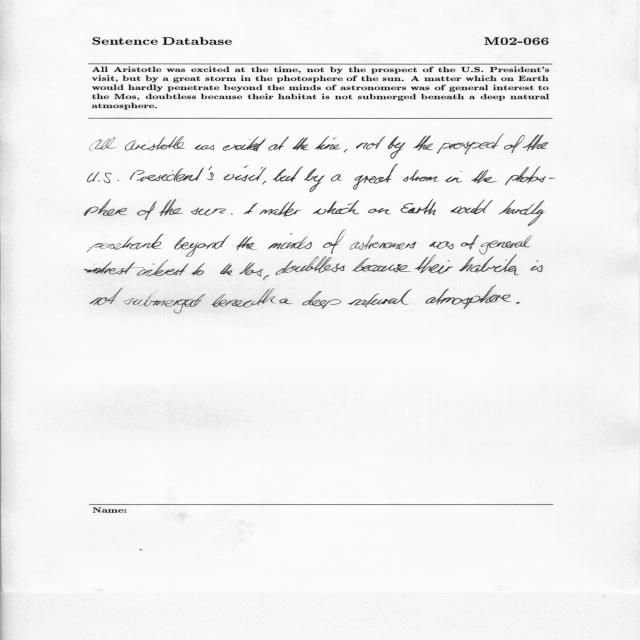 Sentence Database M02-066
All Aristotle was excited at the time, not by the prospect of the U.S. President's
visit, but by a great storm in the photosphere of the sun. A matter which on Earth
would hardly penetrate beyond the minds of astronomers was of general interest to
the Mos, doubtless because their habitat is not submerged beneath a deep natural
atmosphere.
All Aristotle was excited at the time, not by the prospect of the
U.S. President's visit, but by a great storm in the photos-
phere of the sun. A matter which on Earth would hardly
penetrate beyond the minds of astronomers was of general
interest to the Mos, doubtless because their habitat is
not submerged beneath a deep natural atmosphere.
Name: